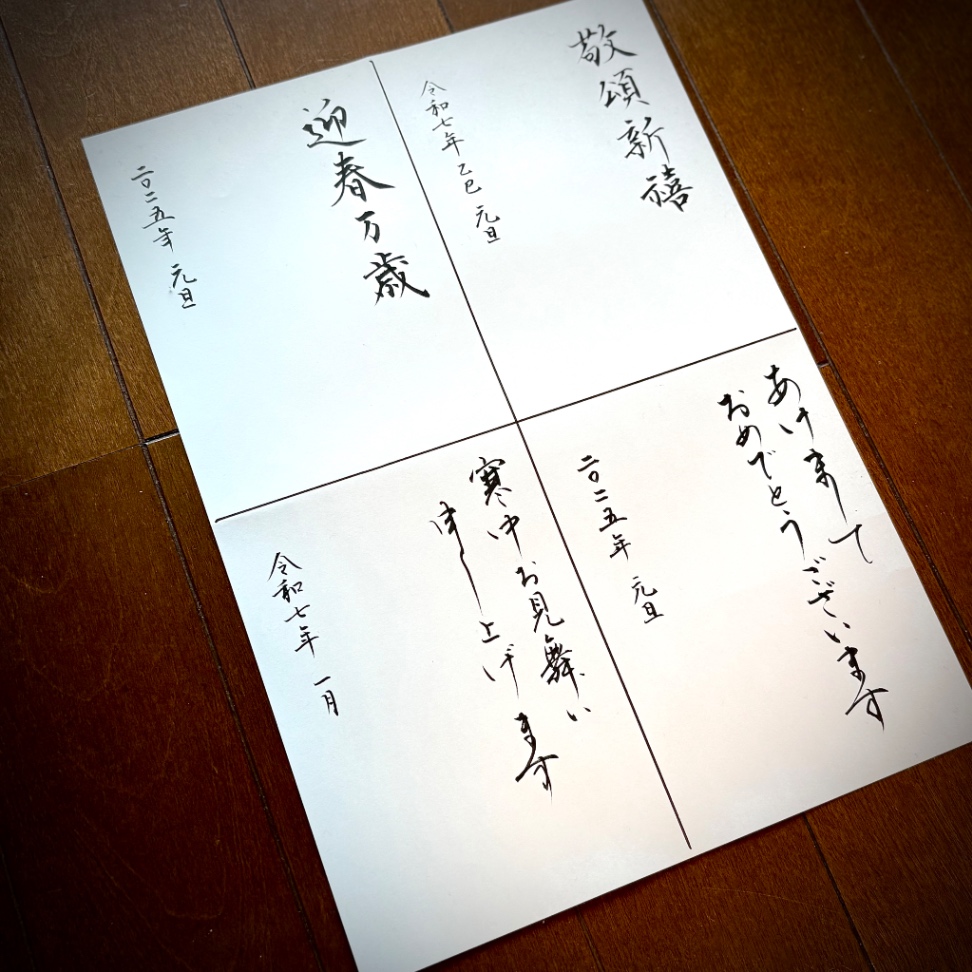 敬頌新禧
令和七年 乙巳 元旦
迎春万歳
二〇二五年 元旦
あけまして
おめでとうございます
二〇二五年 元旦
寒中お見舞い
申し上げます
令和七年 一月